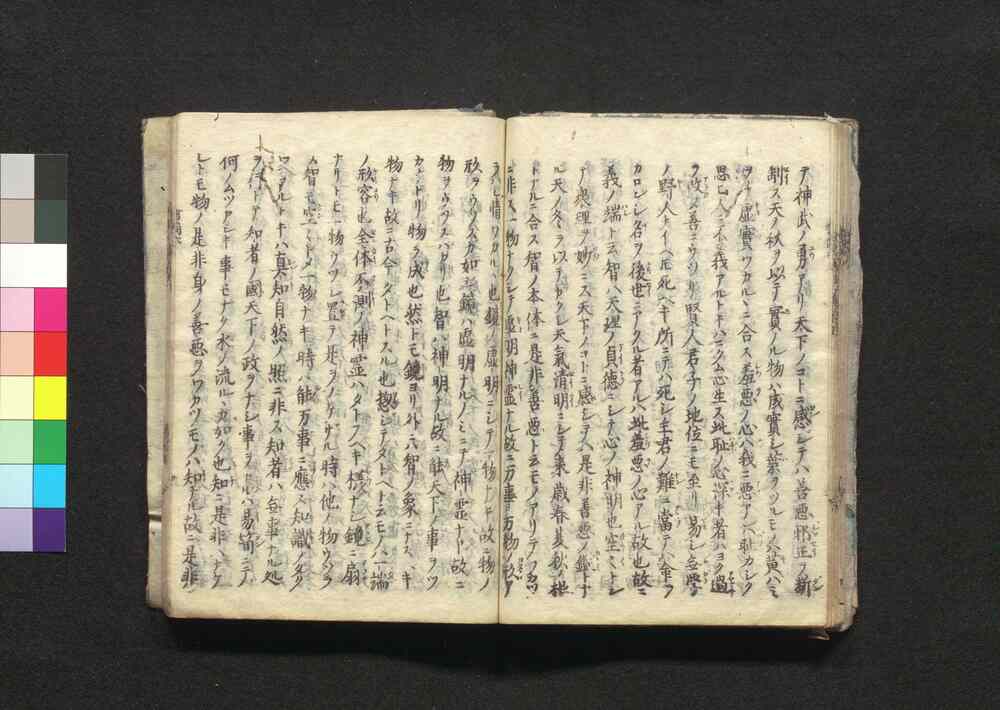 テ神武ノ勇アリ天下ノコトニ感シテハ善悪邪正ヲ断
制ス天ノ秋ヲ以テ實ノル物ハ成實シ葉ヲツルモノハ黄ハミ
虚實ワカルヽニ合ス羞悪ノ心ハ我ニ悪アレハ恥カシク
思ヒ人ニ不義アルトキハニクム心生ス此恥ノ心深キ者ハヨク過
ヲ改メ善ニウツリ賢人君子ノ地位ニモ至リ易シ無学
ノ野人トイヘ𪜈死ヘキ所ニテハ死シ主君ノ難ニ當テハ命ヲ
カロンシ名ヲ後世ニアクル者アルハ此羞悪ノ心アル故也故ニ
義ノ端ト云智ハ天理ノ貞德ニシテ心ノ神明也空々トシ
テ衆理ヲ妙ニス天下ノコトニ感シテハ是非善悪ノ鏡トナ
ル天ノ冬ヲ以テヨクレ天氣清明ニシテ来歳春夏秋ノ根
トナルニ合ス智ノ本体ニ是非善悪ト云モノアリテワカツ
ニ非ス一物ナクシテ虚明神霊ナル故ニ万事万物ノ形ア
ラハレ情ワカル也鏡ハ虚明ニシテ一物ナキ故ニ物ノ
形ヲウツスカ如シ鏡ハ虚明ナルノミニテ神霊ナキ故ニ
物ヲウツスハカリ也智ハ神明ナル故ニ能天下ノ事ヲツ
カサトリ物ヲ成也然トモ鏡ヨリ外ニ智ノ象ニナスヘキ
物ナキ故ニ古今ノタトヘトスル也惣シテタトヘト云モノハ一端
ノ形容也全体不測ノ神霊ハタトフヘキ様ナシ鏡ニ扇
ナリトモ一物ウツレ置テ是ヲノケサル時ハ他ノ物ウツラ
ス智モ空々トメ一物ナキ時ハ能万事ニ應ス知識ノタク
ハヘアルトキハ真知自然ノ照ニ非ス知者ハ無事ナル処
ヲ行トアリ知者ノ國天下ノ政ヲナシ事ヲ心ハ易簡ニテ
何ノムツカシキ事モナク水ノ流ルヽ如クナル也知ニ是非ハナケ
レトモ物ノ是非身ノ善悪ヲワカツノモノハ知ナル故ニ是非ノ